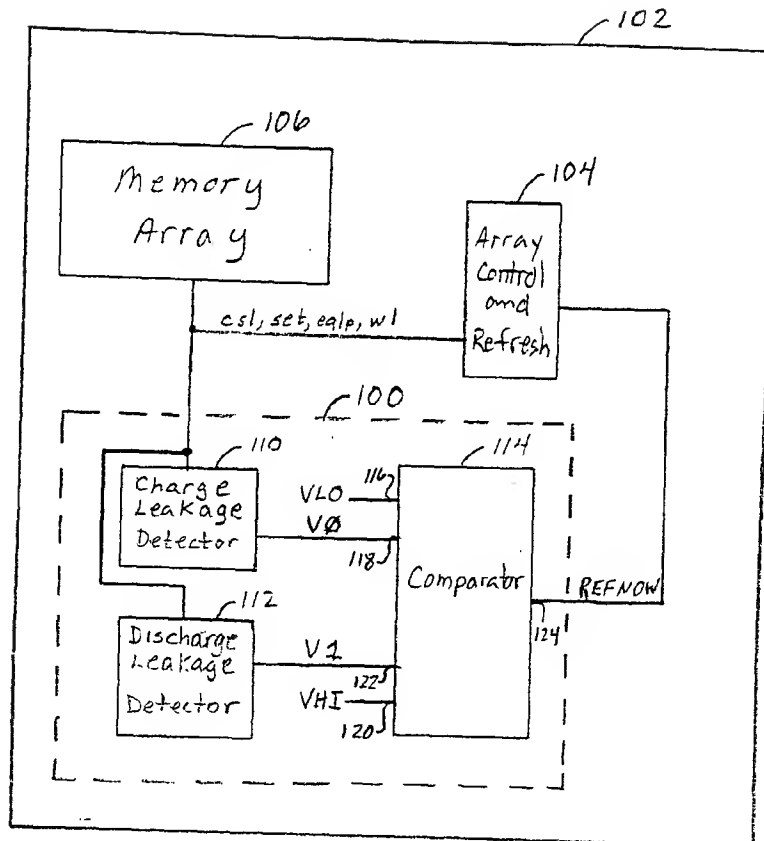 102
106
Memory
Array
104
Array
Control
and
Refresh
csl, set, eqlp, wl
100
110
Charge
Leakage
Detector
114
116
VLO
VØ
118
Comparator
REFNOW
124
112
Discharge
Leakage
Detector
V1
122
VHI
120